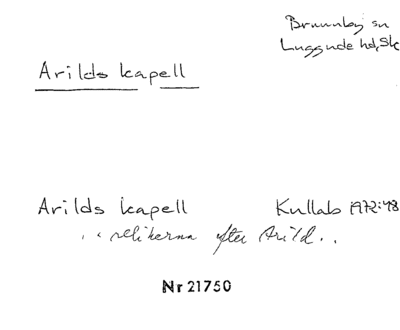 Brunnby sn
Luggude hd, Sk
Arilds kapell
Arilds kapell Kullab 1972:48
.. relikerna efter Arild..
Nr 21750